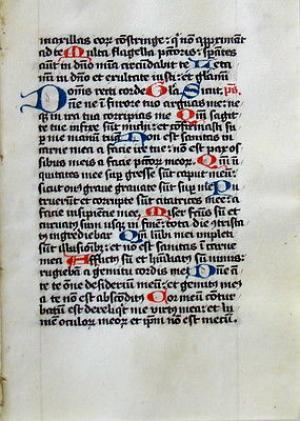 maxillas eor͛ cōstringe: q̄ nō approximāt
ad te Multa flagella pc̄toris: sperātes
aūt in dn̄o mīa circūdabit Leta
mī in dn̄o et exultate iusti: et gl̄iami
omīs recti corde Gl̄a Sicut. ps̄
Domīe ne ī furore tuo arguas me: ne
q̄ in ira tua corripias me Qm̄ sagit
te tue infixe sūt michi: et cōfirmasti su
per me manū tuā Non est sanitas in
carne mea a facie ire tue: nō est pax os
sibus meis a facie pc̄tor͛ meor͛ Qm̄ ī
quitates mee sup̄gresse sūt caput meū:
sicut on̄ graue grauate sūt sup̄ me Pu
truerūt et corrupte sūt cicatrices mee: a
facie insipiēcie mee Miser fc̄us sū et
curuatus sum usq̄ in finē: tota die cōtrista
tus ingrediebar Qm̄ lūbi mei impleti
sūt illusiōib⁊: et nō est sanitas ī carne
mea Afflictus sū et hūiliatus sū nimis:
rugiebā a gemitu cordis mei Dn̄e ā
te te om̄e desideriū meū: et gemitus meus
a te nō est abscōdit⁹ Cor meū cōtur
batū est dereliq̄t me virtus mea: et lu
mē oculor͛ meor͛ et ip̄m nō est mecū.